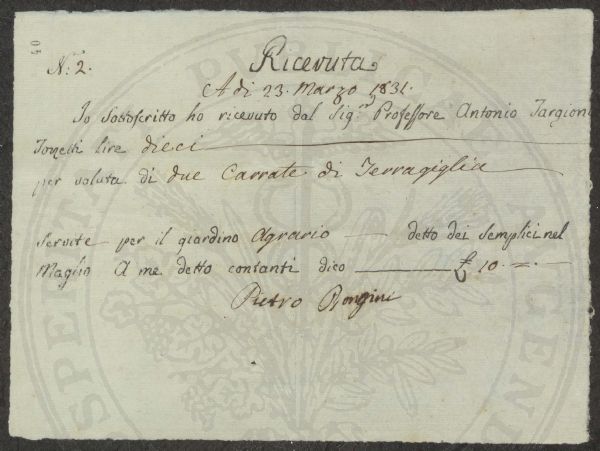 40
N.° 2.
Ricevuta
A dì 23. Marzo 1831.
Io Sottoscritto ho ricevuto dal Sig.re Professore Antonio Targioni
Tozzetti lire dieci
per valuta di due Carrate di Terragiglia
Servite per il giardino Agrario — detto dei Semplici nel
Maglio A me detto contanti dico — £ 10. =. —
Pietro Bongini